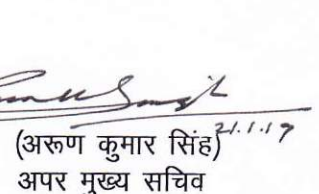 21.1.17
(अरूण कुमार सिंह)
अपर मुख्य सचिव